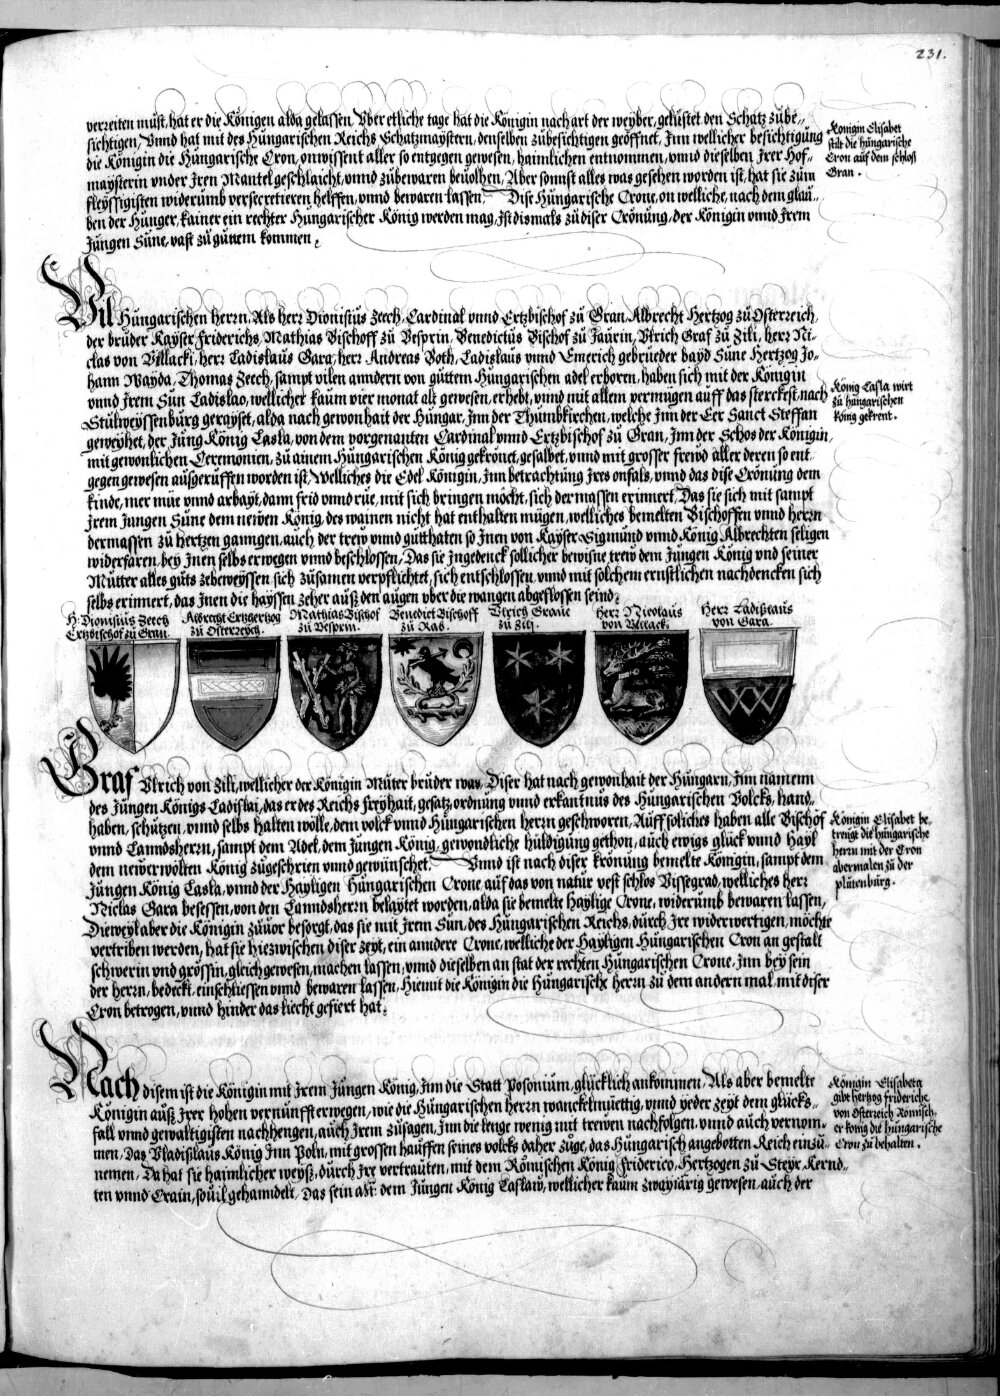 231.
verreiten müst, hat er die Königen alda gelassen, Vber etliche tage hat die Königin nach art der weyber, gelüstet den Schatz zübe-
sichtigen, Vnnd hat mit des Hungarischen Reichs Schatzmaystern, denselben zübesichtigen geöffnet, Jnn wellicher besichtigüng
die Königin die Hüngarische Cron, onwissent aller so entgegen gewesen, haimlichen entnommen, vnnd dieselben Jrer Hof-
maysterin vnder Jren Mantel geschlaicht, vnnd zübewaren beüolhen, Aber sonnst alles was gesehen worden ist, hat sie züm
fleyssigisten widerümb versecretieren helffen, vnnd bewaren lassen. Dise Hüngarische Crone, on welliche, nach dem glaü-
ben der Hünger, kainer ein rechter Hüngarischer König werden mag, Jst dismals zü diser Crönüng, der Königin vnnd Jrem
Jüngen Süne, vast zü güttem kommen.
Königin Elisabet
stilt die hüngarische
Cron auf dem schloß
Gran.
Vil Hüngarischen herrn, Als herr Dionisius Zeech, Cardinal vnnd Ertzbischof zü Gran, Albrecht Hertzog zü Osterreich,
der brüder Kayser Friderichs, Mathias Bischoff zü Vesprin, Benedictus Bischof zü Jaürin, Vlrich Graf zü Zili, herr Ni-
clas von Villacki, herr Ladislaüs Gara, herr Andreas Both, Ladislaus vnnd Emerich gebrüeder bayd Süne Hertzog Jo-
hann Wayda, Thomas Zeech, sampt vilen anndern von güttem Hüngarischen adel erboren, haben sich mit der Königin
vnnd Jrem Sün Ladislao, wellicher kaüm vier monat alt gewesen, erhebt, vnnd mit allem vermügen auff das sterckest, nach
Stülweyssenbürg gerayset, alda nach gewonhait der Hüngar, Jnn der Thümbkirchen, welche Jnn der Eer Sanct Steffan
geweyhet, der Jüng König Lasla, von dem vorgenanten Cardinal vnnd Ertzbischof zü Gran, Jnn der Schos der Königin,
mit gewonlichen Ceremonien, zü ainem Hüngarischen König gekrönet, gesalbet, vnnd mit grosser freüd aller deren so ent
gegen gewesen außgerüffen worden ist, Welliches die Edel Königin, Jnn betrachtüng Jres onfals, vnnd das dise Crönüng dem
kinde, mer müe vnnd arbayt, dann frid vnnd rüe, mit sich bringen möcht, sich dermassen erinnert, Das sie sich mit sampt
Jrem Jungen Süne dem newen König, des wainen nicht hat enthalten mügen, welliches bemelten Bischoffen vnnd herrn
dermassen zü hertzen ganngen, auch der trew vnnd gütthaten so Jnen von Kayser Sigmünd vnnd König Albrechten seligen
widerfaren, bey Jnen selbs erwegen vnnd beschlossen, Das sie Jngedenck söllicher bewisne trew dem Jüngen König vnd seiner
Mütter alles güts zebeweyssen sich züsamen verpflichtet, sich entschlossen, vnnd mit solchem ernstlichen nachdencken sich
selbs erinnert, das Jnen die hayssen zeher auß den augen vber die wangen abgeflossen seind.
König Lasla wirt
zü hüngarischen
König gekrönt.
H. Dionisius Zeech
Ertzbischof zü Gran.
Albrecht Ertzhertzog
zü Osterreych.
Mathias Bischof
zü Vesprin.
Benedict Bischoff
zü Rab.
Vlrich Graue
zü Zily.
Herr Nicolaus
von Villack.
Herr Ladislaus
von Gara.
Graf Vlrich von Zili, wellicher der Königin Müter brüder was, Diser hat nach gewonhait der Hüngarn, Jnn namenn
des Jüngen Königs Ladislai, das er des Reichs freyhait, gesatz, ordnüng vnnd erkantnüs des Hüngarischen Volcks, hand-
haben, schützen, vnnd selbs halten wölle, dem volck vnnd Hüngarischen herrn geschworen, Auff soliches haben alle Bischöf
vnnd Lanndsherrn, sampt dem Adel, dem Jüngen König, gewondliche hüldigüng gethon, auch ewigs glück vnnd Hayl
dem newerwölten König zügeschrien vnnd gewünschet. Vnnd ist nach diser krönüng bemelte Königin, sampt dem
Jüngen König Lasla, vnnd der Hayligen Hüngarischen Crone auf das von natür vest schlos Vissegrad, welliches herr
Niclas Gara besessen, von den Lanndsherrn belaytet worden, alda sie bemelte Haylige Crone, widerümb bewaren lassen,
Dieweyl aber die Königin züuor besorgt, das sie mit Jrem Sün, des Hüngarischen Reichs, dürch Jre widerwertigen, möchte
vertriben werden, hat sie hiezwischen diser zeyt, ein anndere Crone, welliche der Hayligen Hüngarischen Cron an gestalt
schwerin vnd grössin, gleich gewesen, machen lassen, vnnd dieselben an stat der rechten Hüngarischen Crone, Jnn bey sein
der herrn, bedeckt, einschliessen vnnd bewaren lassen, Hiemit die Königin die Hüngarische herrn zü dem andern mal, mit diser
Cron betrogen, vnnd hinder das liecht gefiert hat.
Königin Elisabet be-
treügt die hüngarische
herrn mit der Cron
abermalen zü der
plütenbürg.
Nach disem ist die Königin mit Jrem Jüngen König, Jnn die Statt Posonium, glücklich ankommen, Als aber bemelte
Königin auß Jrer hohen vernünfft erwegen, wie die Hüngarischen herrn wanckelmüettig, vnnd yeder zeyt dem glücks-
fall vnnd gewaltigisten nachhengen, auch Jrem züsagen, Jnn die lenge wenig mit trewen nachfolgen, vnnd auch vernom-
men, Das Vladislaüs König Jnn Poln, mit grossen haüffen seines volcks daher züge, das Hüngarisch angebotten Reich einzü-
nemen, Da hat sie haimlicher weyß, dürch Jre vertraüten, mit dem Römischen König Friderico, Hertzogen zü Steyr, Kernd-
ten vnnd Crain, souil gehanndelt, Das sein dem Jüngen König Laslaw, wellicher kaüm zwayiärig gewesen, auch der
Königin Elisabeta
gibt hertzog friderichen
von Osterreich Römisch-
er könig die hüngarische
Cron zü behalten.